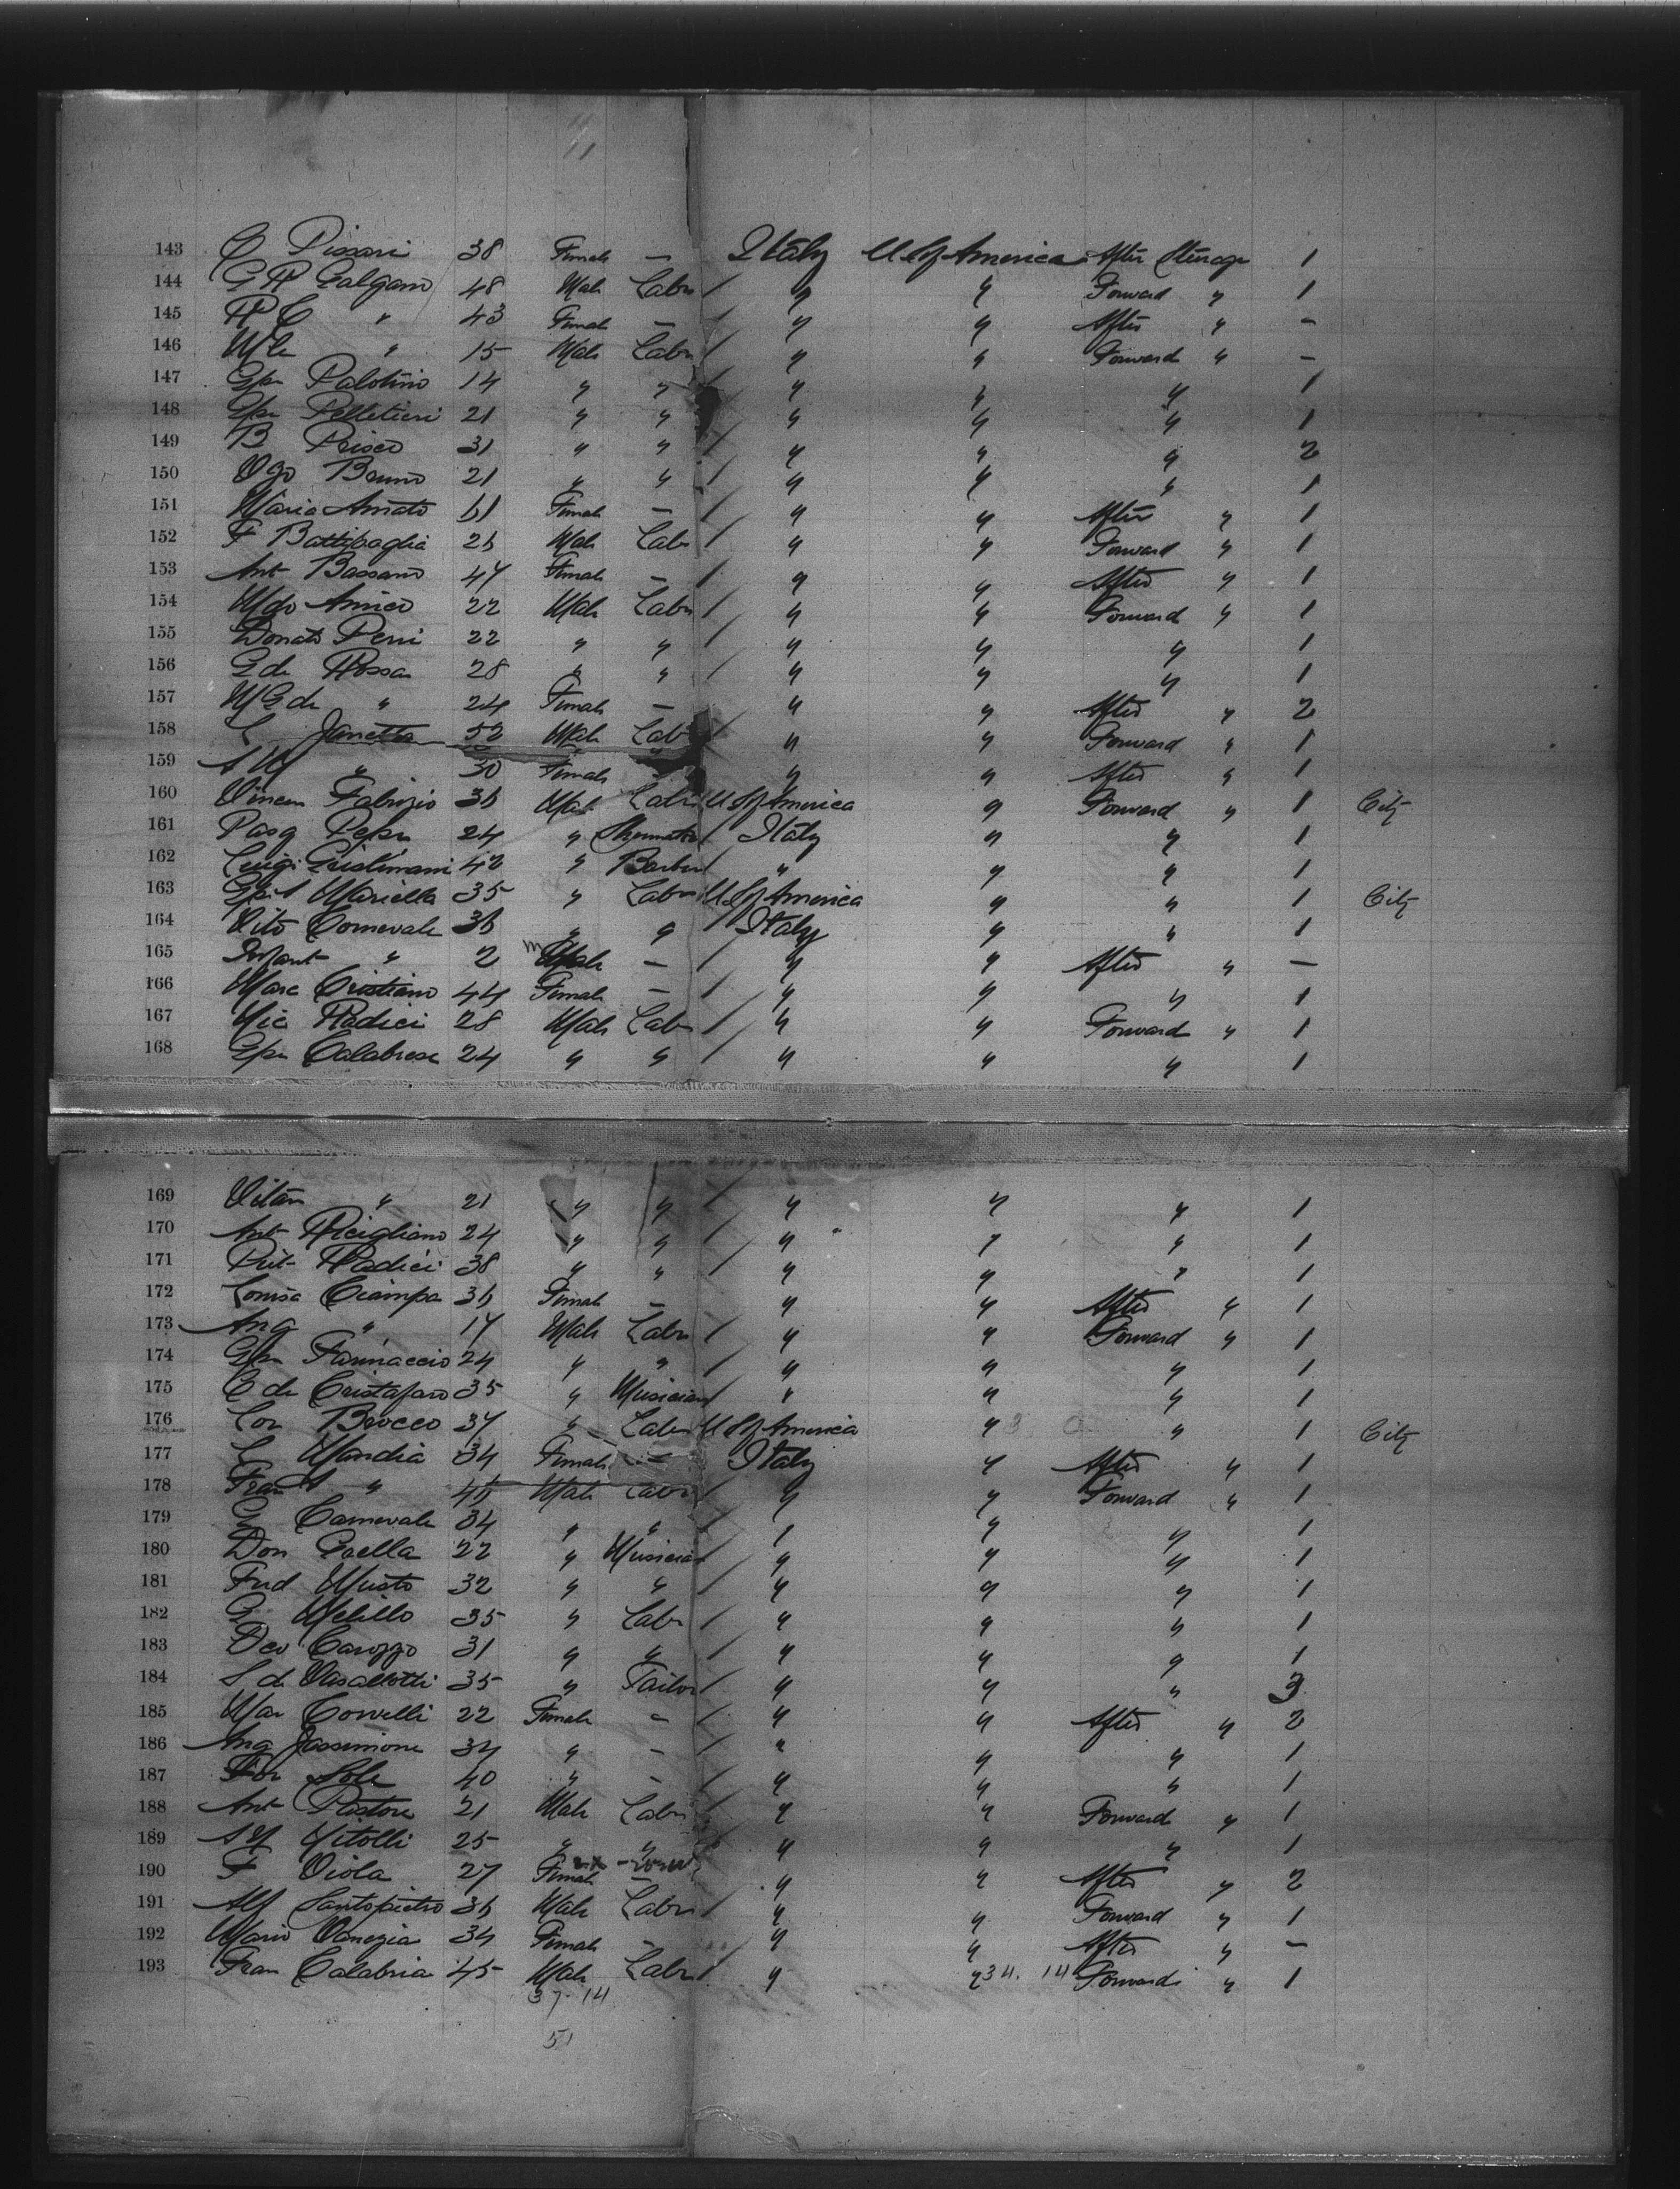 143 C Pissari 38 Female — Italy U S of America After Steerage 1
144 G R Galgano 48 Male Labr / " " Forward " 1
145 R C " 43 Female — / " " After " -
146 Mle " 15 Male Labr / " " Forward " -
147 Gpe Palotino 14 " " / " " " 1
148 Gpe Pelletieri 21 " " " " " 1
149 B Prisco 31 " " " " " 2
150 Ugo Bruno 21 " " / " " " 1
151 Maria Amato 61 Female — / " " After " 1
152 F Battipaglia 26 Male Labr / " " Forward " 1
153 Ant Bassano 47 Female — / " " After " 1
154 Mdo Amico 22 Male Labr / " " Forward " 1
155 Donato Perri 22 " " / " " " 1
156 G de Rossa 28 " " / " " " 1
157 M G de " 24 Female — / " " After " 2
158 Janetta 52 Male Labr / " " Forward " 1
159 A M " 30 Female " " After " 1
160 Vincen Fabrizio 36 Male Labr U S of America " Forward " 1 City
161 Pasq Pepe 24 " Shoemaker / Italy " " 1
162 Luigi 42 " Barber / " " " 1
163 Mariella 35 " Labr U S of America " " 1 City
164 Vito Cornevale 36 " " Italy " " 1
165 Infant " 2 m Male — / " " After " —
166 Marc Cristiano 44 Female — / " " " 1
167 Nic Radici 28 Male Labr / " " Forward " 1
168 Gpe Calabrese 24 " " / " " " 1
169 Vitan " 21 " " / " " " 1
170 Ant Ricigliano 24 " " / " " " 1
171 Piet Radici 38 " " / " " " 1
172 Louisa Ciampa 36 Female — " " After " 1
173 Ang " 17 Male Labr / " " Forward " 1
174 Gpe Farinaccio 24 " " / " " " 1
175 C de Cristafaro 35 " Musician / " " " 1
176 Con Brocco 37 " Labr U S of America " " 1 City
177 C Mandia 34 Female — Italy " After " 1
178 Fran A " 46 Male Labr / " " Forward " 1
179 G Carnevale 34 " " / " " " 1
180 Don Coella 22 " Musician / " " " 1
181 Fred Musto 32 " " / " " " 1
182 G Melillo 35 " Labr / " " " 1
183 Deo Carozzo 31 " " / " " " 1
184 S de Vasallotti 35 " Tailor / " " " 3
185 Mar Corvelli 22 Female - / " " After " 2
186 Ang Jassimone 34 " - / " " " 1
187 Sole 40 " - / " " " 1
188 Ant Pastore 21 Male Labr / " " Forward " 1
189 A N Vitolli 25 " " " " " 1
190 F Viola 27 Female — " " After " 2
191 Alf Santopietro 36 Male Labr / " " Forward " 1
192 Maria Venezia 34 Female — " " After " -
193 Fran Calabria 45 Male Labr / " " 34. 14 Forward " 1
37-14
51